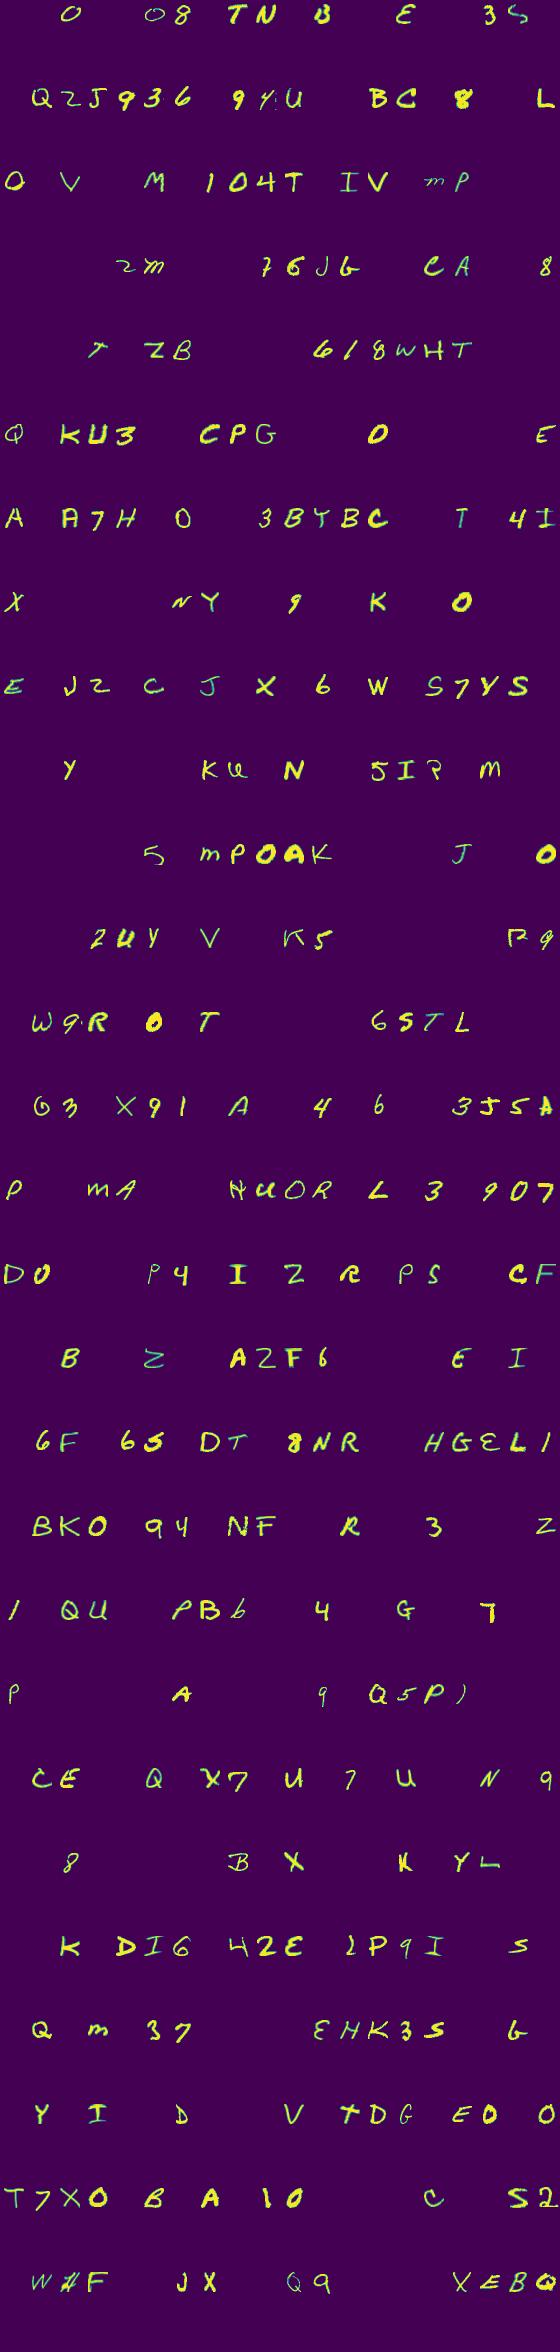 O O8 TN B E 3S
QZJ936 9YU BC 8 L
O V M 104T IV mP
2m 76JG CA 8
7 ZB 618WHT
Q KU3 CPG O E
A A7H O 3BYBC T 4I
X NY 9 K O
E J2 C J X 6 W S7YS
Y KU N 5IR M
5 mPOAK J O
2UY V K5 R9
W9R O T 6STL
G3 X91 A 4 6 3J5A
P mA HUOR L 3 907
DO P4 I Z R PS CF
B Z AZF6 E I
6F 6S DT 8NR HGEL1
BKO 94 NF R 3 Z
1 QU PB6 4 G 7
P A 9 Q5P)
CE Q X7 U 7 U N 9
8 B X K YL
K DI6 42E 1P9I S
Q m 37 EHK3S G
Y I D V TDG EO O
T7XO B A 10 C S2
W#F JX Q9 XEBQ